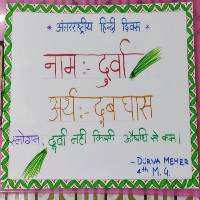 * अंतरराष्ट्रीय हिन्दी दिवस *
नाम :- दुर्वा
अर्थ :- दूब घास
स्लोगन :- दुर्वा नही किसी औषधि से कम।
- DURVA MEHER
4th M.G.